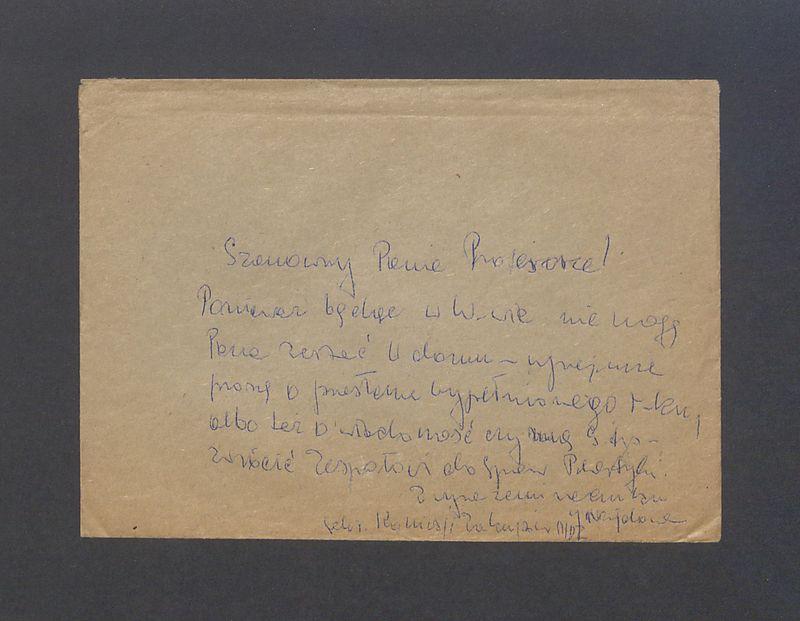 Szanowny Panie Profesorze!
Ponieważ będąc w W-wie nie mogę
Pana zastać w domu – uprzejmie
proszę o przesłanie wypełnionego r-ku,
albo też o wiadomość czy mają 5 tys –
zwrócić Zespołowi do Spraw Plastyki.
Z wyrazami szacunku
Sekr. Komisji Zakupów